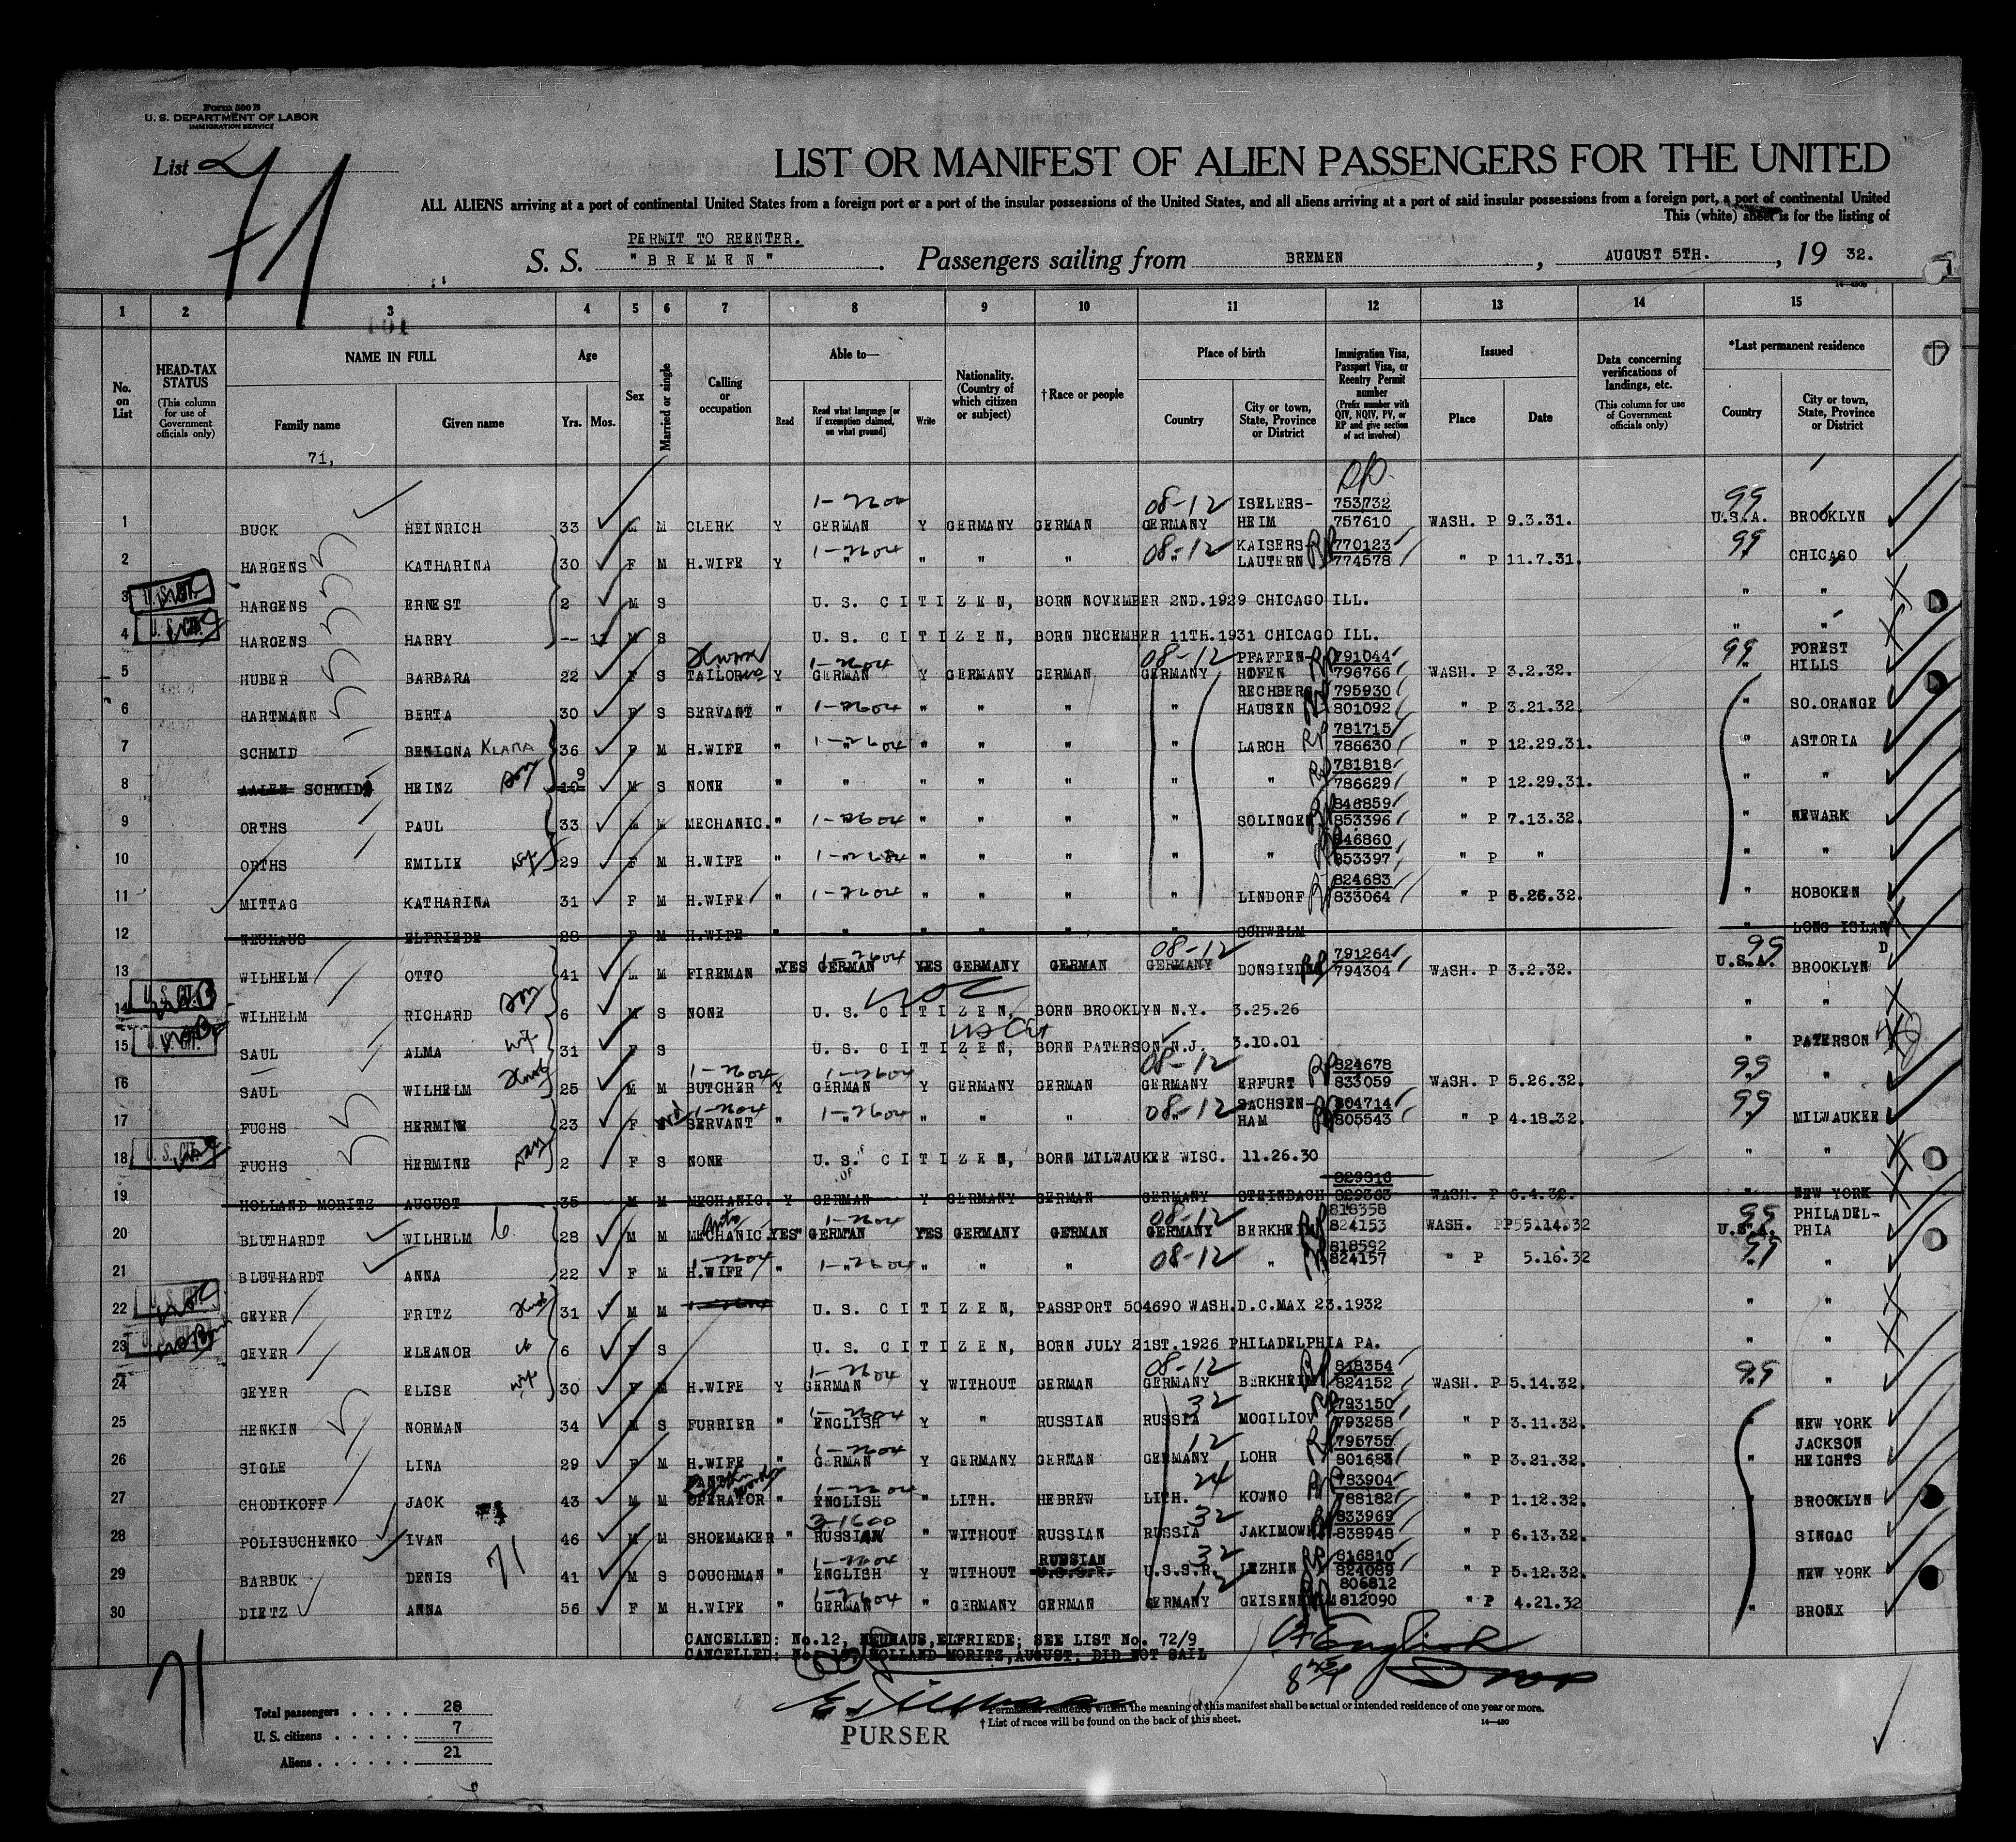 Form 500 B
U. S. DEPARTMENT OF LABOR
IMMIGRATION SERVICE
List 71
LIST OR MANIFEST OF ALIEN PASSENGERS FOR THE UNITED
ALL ALIENS arriving at a port of continental United States from a foreign port or a port of the insular possessions of the United States, and all aliens arriving at a port of said insular possessions from a foreign port, a port of continental United
This (white) sheet is for the listing of
PERMIT TO REENTER.
S. S. "BREMEN" . Passengers sailing from BREMEN , AUGUST 5TH. , 19 32.
1 2 3 4 5 6 7 8 9 10 11 12 13 14 15
No. on List
HEAD-TAX STATUS (This column for use of Government officials only)
NAME IN FULL Family name Given name
Age Yrs. Mos.
Sex
Married or single
Calling or occupation
Able to— Read Read what language [or if exemption claimed, on what ground] Write
Nationality. (Country of which citizen or subject)
†Race or people
Place of birth Country City or town, State, Province or District
Immigration Visa, Passport Visa, or Reentry Permit number (Prefix number with QIV, NQIV, PV, or RP and give section of act involved)
Issued Place Date
Data concerning verifications of landings, etc. (This column for use of Government officials only)
*Last permanent residence Country City or town, State, Province or District
71,
1 BUCK HEINRICH 33 M M CLERK Y 1-2604 GERMAN Y GERMANY GERMAN 08-12 GERMANY ISELERS-HEIM 753732 757610 WASH. P 9.3.31. 99 U.S.A. BROOKLYN
2 HARGENS KATHARINA 30 F M H.WIFE Y 1-2604 " " " " 08-12 " KAISERS-LAUTERN RP 770123 774578 " P 11.7.31. 99 " CHICAGO
3 U.S. CIT. HARGENS ERNEST 2 M S U. S. CITIZEN, BORN NOVEMBER 2ND.1929 CHICAGO ILL. " "
4 U.S. CIT. HARGENS HARRY -- 11 M S U. S. CITIZEN, BORN DECEMBER 11TH.1931 CHICAGO ILL. " "
5 HUBER BARBARA 22 F S TAILOR Y 1-2604 GERMAN Y GERMANY GERMAN 08-12 GERMANY PFAFFEN-HOFEN RP 791044 796766 WASH. P 3.2.32. 99 " FOREST HILLS
6 HARTMANN BERTA 30 F S SERVANT " 1-2604 " " " " " RECHBERG HAUSEN RP 795930 801092 " P 3.21.32. " SO.ORANGE
7 SCHMID BENIGNA KLARA 36 F M H.WIFE " 1-2604 " " " " " LARCH RP 781715 786630 " P 12.29.31. " ASTORIA
8 AALEN SCHMID HEINZ son 10 9 M S NONE " " " " " " " RP 781818 786629 " P 12.29.31. " "
9 ORTHS PAUL 33 M M MECHANIC. " 1-2604 " " " " SOLINGEN RP 846859 853396 " P 7.13.32. " NEWARK
10 ORTHS EMILIE wife 29 F M H.WIFE " 1-2604 " " " " " RP 846860 853397 " P " " "
11 MITTAG KATHARINA 31 F M H.WIFE " 1-2604 " " " " LINDORF RP 824683 833064 " P 5.26.32. " HOBOKEN
12 NEUHAUS ELFRIEDE 28 F M H.WIFE " " " " " " SCHWELM " LONG ISLAND
13 WILHELM OTTO 41 M M FIREMAN YES 1-2604 GERMAN YES GERMANY GERMAN 08-12 GERMANY DONSIEDEN RP 791264 794304 WASH. P 3.2.32. 99 U.S.A. BROOKLYN
14 U.S. CIT. WILHELM RICHARD son 6 M S NONE U. S. CITIZEN, BORN BROOKLYN N.Y. 3.25.26 " "
15 U.S. CIT. SAUL ALMA wife 31 F S U. S. CITIZEN, US Cit BORN PATERSON N.J. 3.10.01 " PATERSON
16 SAUL WILHELM Husb 25 M M 1-2604 BUTCHER Y 1-2604 GERMAN Y GERMANY GERMAN 08-12 GERMANY ERFURT RP 824678 833059 WASH. P 5.26.32. 99 " "
17 FUCHS HERMINE 23 F SERVANT " 1-2604 " " " " 08-12 " SACHSEN-HAM RP 804714 805543 " P 4.18.32. 99 " MILWAUKEE
18 U.S. CIT. FUCHS HERMINE 2 F S NONE U. S. CITIZEN, BORN MILWAUKEE WISC. 11.26.30 " "
19 HOLLAND MORITZ AUGUST 35 M M MECHANIC. Y GERMAN Y GERMANY GERMAN GERMANY STEINBACH 829316 829363 WASH. P 6.4.32. " NEW YORK
20 BLUTHARDT WILHELM 28 M M Auto MECHANIC. YES 1-2604 GERMAN YES GERMANY GERMAN 08-12 GERMANY BERKHEIM RP 818358 824153 WASH. 99 U.S.A. PHILADEL-PHIA
21 BLUTHARDT ANNA 22 F M 1-2604 H.WIFE " 1-2604 " " " " 08-12 " RP 818592 824157 " P 5.16.32 99 " "
22 U.S. CIT. GEYER FRITZ Husb 31 M M U. S. CITIZEN, PASSPORT 504690 WASH.D.C.MAX 23.1932 " "
23 U.S. CIT. GEYER ELEANOR 6 F S U. S. CITIZEN, BORN JULY 21ST.1926 PHILADELPHIA PA. " "
24 GEYER ELISE wife 30 F M H.WIFE Y 1-2604 GERMAN Y WITHOUT GERMAN 08-12 GERMANY BERKHEIM RP 818354 824152 WASH. P 5.14.32. 99 " "
25 HENKIN NORMAN 34 M S FURRIER " 1-2604 ENGLISH Y " RUSSIAN 32 RUSSIA MOGILIOV RP 793150 793258 " P 3.11.32. " NEW YORK
26 SIGLE LINA 29 F M H.WIFE " 1-2604 GERMAN Y GERMANY GERMAN 12 GERMANY LOHR RP 795755 801683 " P 3.21.32. " JACKSON HEIGHTS
27 CHODIKOFF JACK 43 M M OPERATOR " 1-2604 ENGLISH " LITH. HEBREW 24 LITH. KOWNO RP 783904 788182 " P 1.12.32. " BROOKLYN
28 POLISUCHENKO IVAN 46 M M SHOEMAKER " 3-1600 RUSSIAN " WITHOUT RUSSIAN 32 RUSSIA JAKIMOW RP 833969 838948 " P 6.13.32. " SINGAC
29 BARBUK DENIS 71 41 M S COUCHMAN " 1-2604 ENGLISH Y WITHOUT RUSSIAN U.S.S.R. 32 U.S.S.R. LEZHIN RP 816810 824089 " P 5.12.32. " NEW YORK
30 DIETZ ANNA 56 F M H.WIFE " 1-2604 GERMAN " GERMANY GERMAN 12 GERMANY GEISENHEIM RP 806812 812090 " P 4.21.32 " BRONX
CANCELLED: No.12, NEUHAUS,ELFRIEDE; SEE LIST No. 72/9
CANCELLED: No. 19, HOLLAND MORITZ,AUGUST; DID NOT SAIL
71
Total passengers . . . . 28
U. S. citizens . . . . . 7
Aliens . . . . . . 21
PURSER
*Permanent residence within the meaning of this manifest shall be actual or intended residence of one year or more.
† List of races will be found on the back of this sheet.
14—430